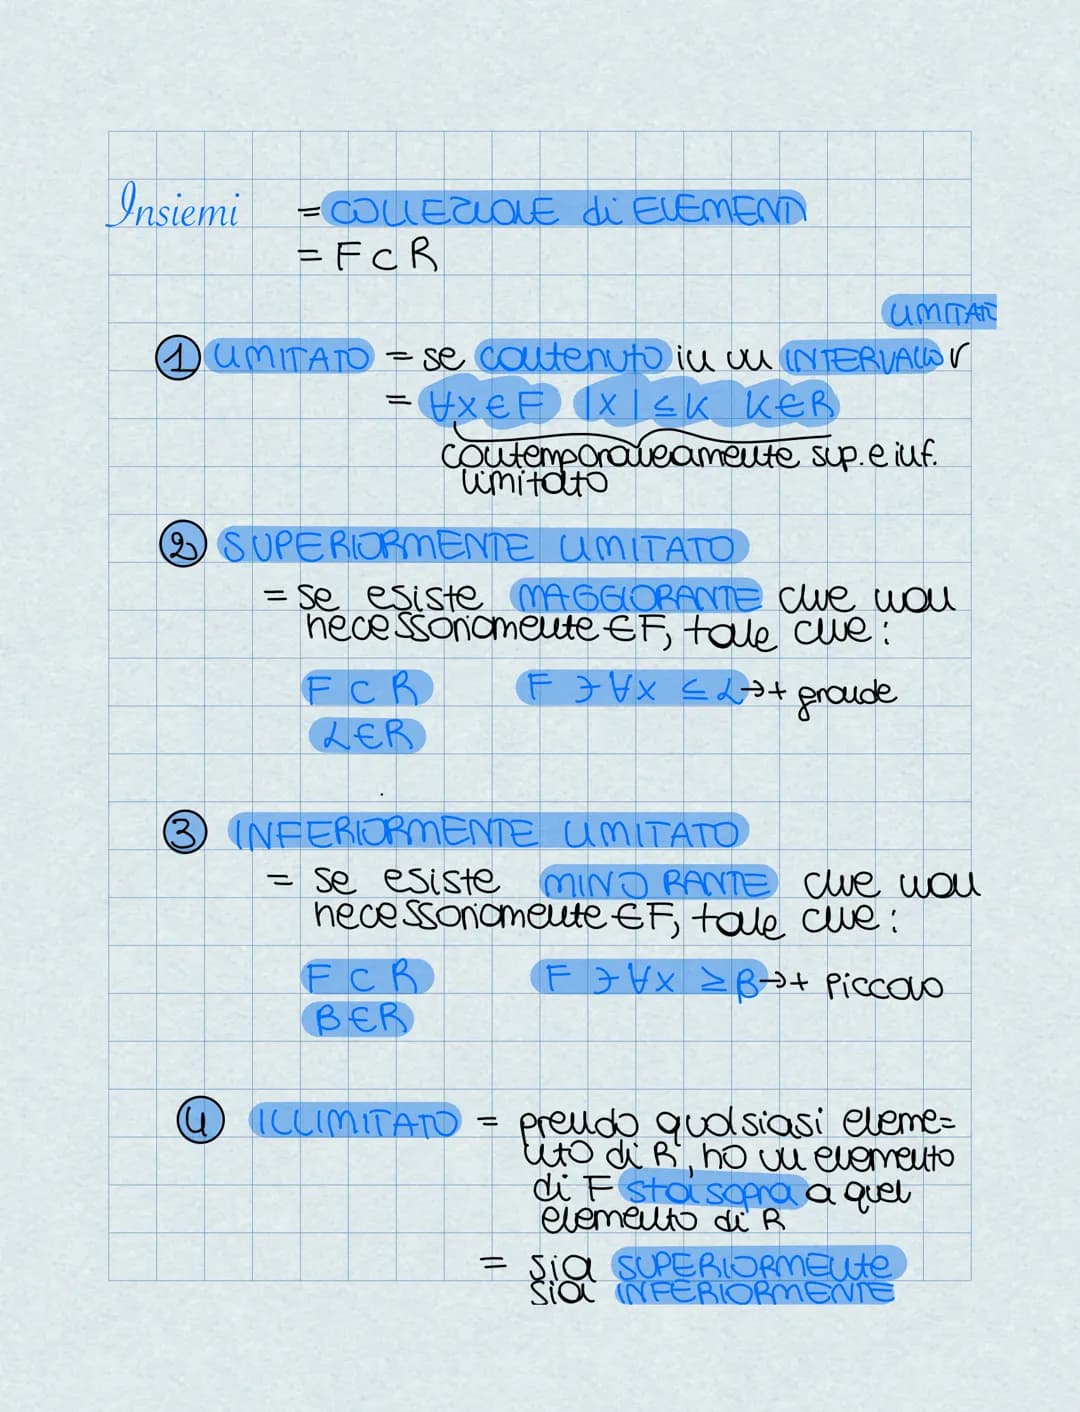 Insiemi = COLLEZIONE di ELEMENTI
= F ⊂ R
LIMITATO
① LIMITATO = se contenuto in un INTERVALLO
= ∀x∈F |x| ≤ K K∈R
contemporaneamente sup. e inf.
limitato
② SUPERIORMENTE LIMITATO
= se esiste MAGGIORANTE che non
necessariamente ∈F, tale che:
F ⊂ R F ∋ ∀x ≤ L → + grande
L∈R
③ INFERIORMENTE LIMITATO
= se esiste MINORANTE che non
necessariamente ∈F, tale che:
F ⊂ R F ∋ ∀x ≥ β → + piccolo
β∈R
④ ILLIMITATO = prendo qualsiasi eleme=
nto di R, ho un elemento
di F sta sopra a quel
elemento di R
= sia SUPERIORMENTE
sia INFERIORMENTE